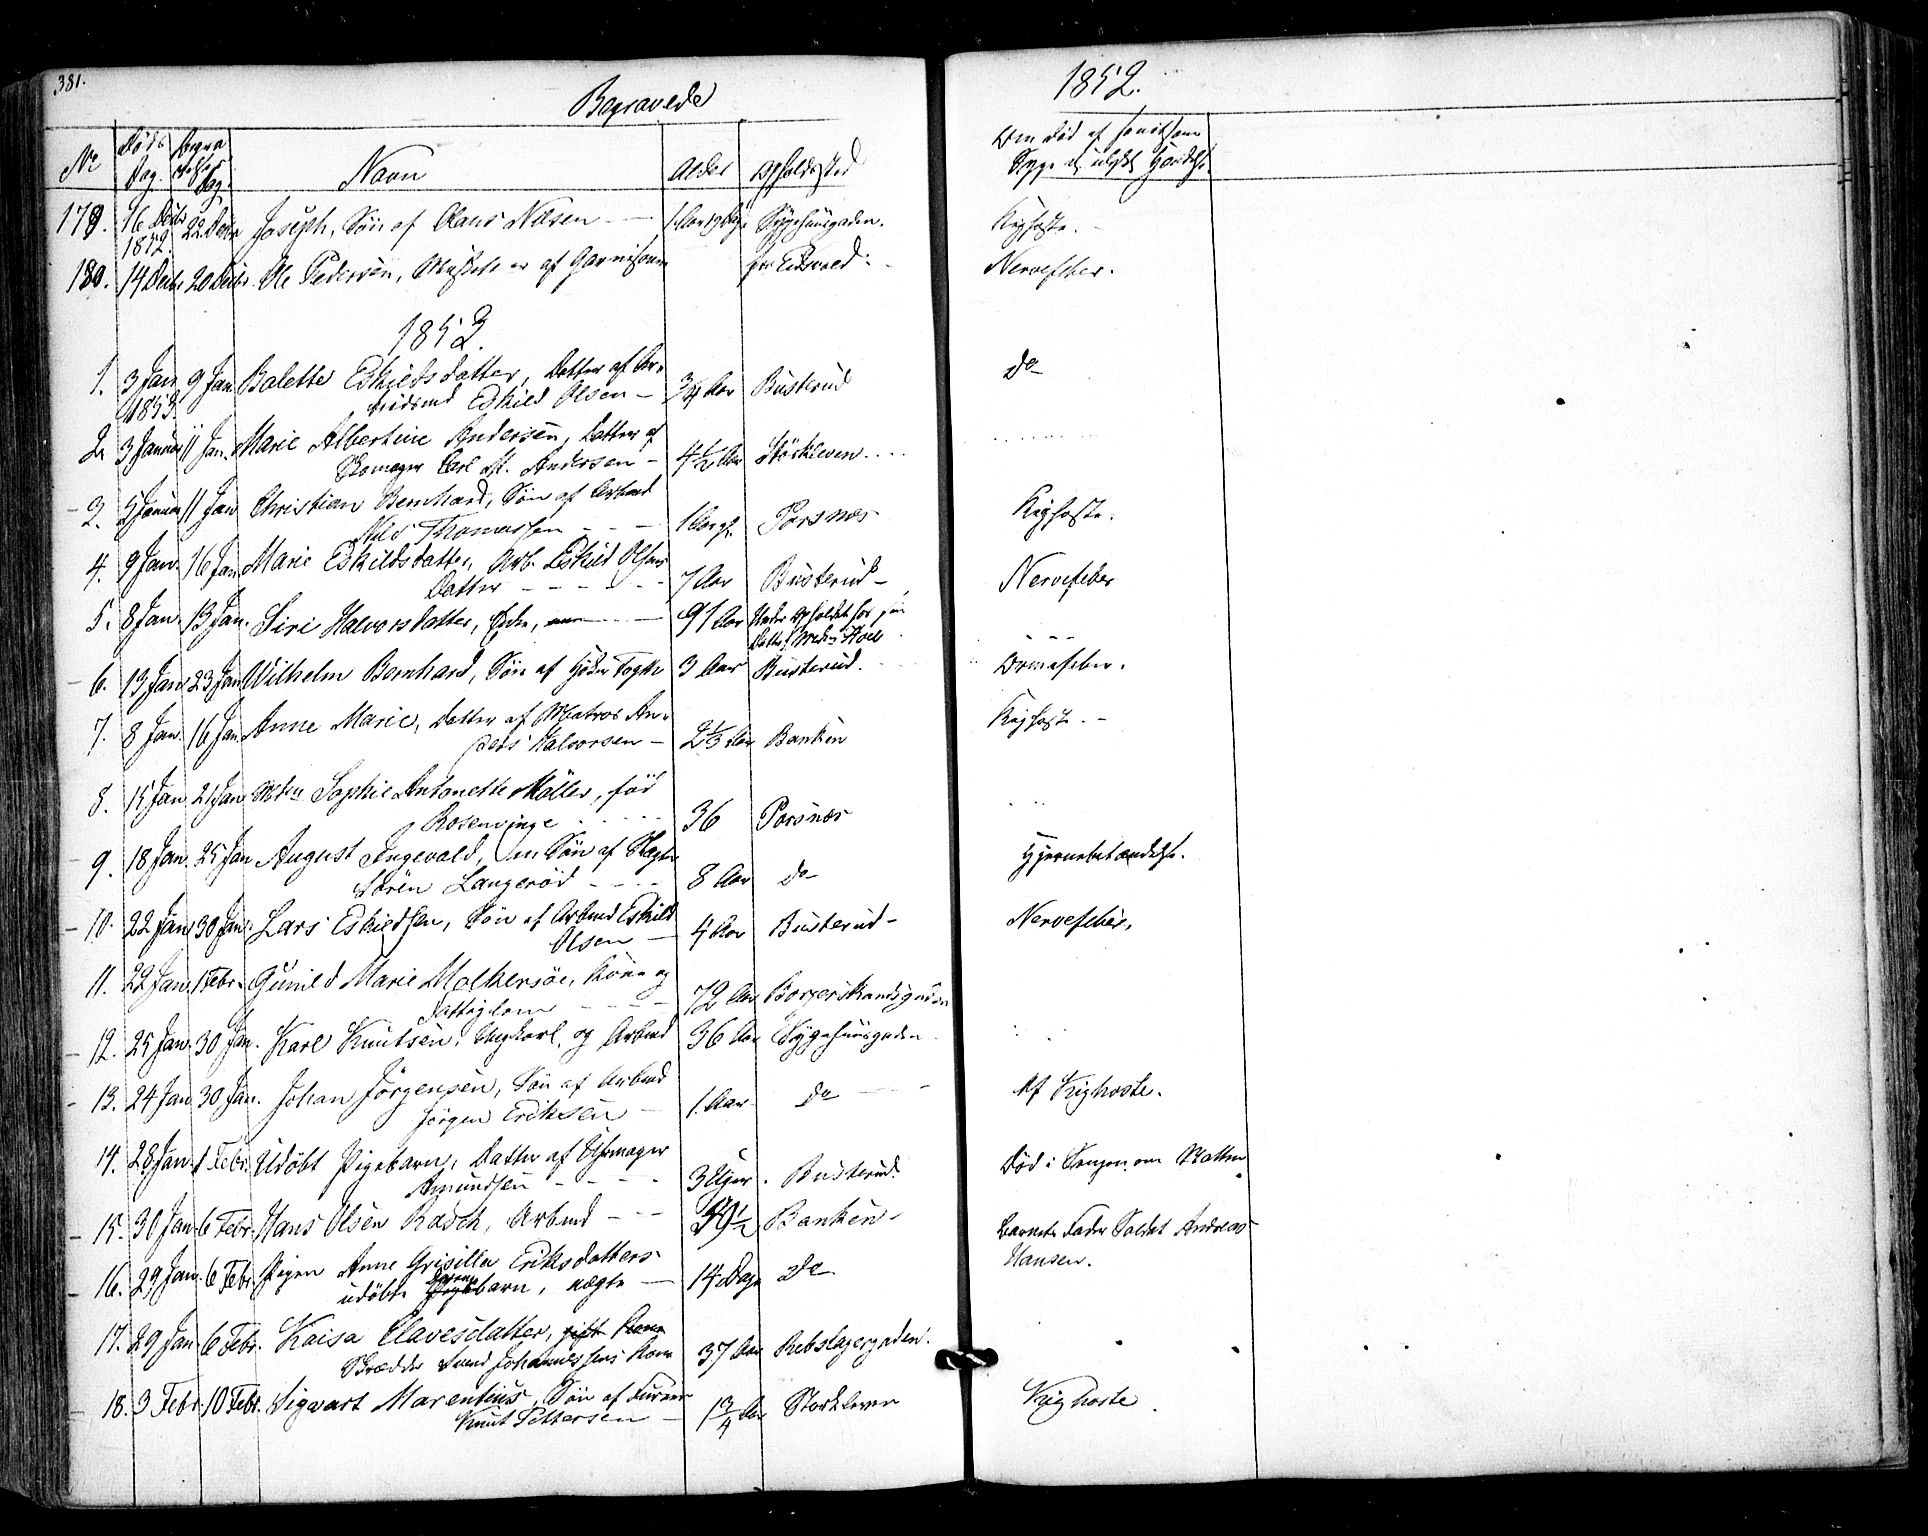 381.
Begravede
1852.
No
Døds Dag.
Begravelses Dag.
Navn
Alder
Opholdssted
Om død af smitsom
Syge
179. 16 Decbr 1852 22 Decbr Joseph, Søn af Olaus Nilsen — Sygehuusgaden. Kighoste.
180. 14 Decbr 20 Decbr Ole Pedersen, af Garnisonen fra Eidsvold. Nervefeber.
1853.
1. 3 Jan 1853. 9 Jan Balette Eskildsdatter, Datter af Ar-
beidsmd Eskild Olsen — 3/4 Aar Busterud do
2. 3 Januar 11 Jan. Marie Albertine Andersen, Datter af
Skomager Carl M. Andersen — 4 1/2 Aar Störkleven
3. 5 Januar 11 Jan Christian Bernhard, Søn af Arbmd
Nils Thomassen — 1 Aar Porsnæs Kighoste.
4. 9 Jan. 16 Jan Marie Eskildsdatter, Arb. Eskild Olsens
Datter — 7 Aar Busterud — Nervefeber
5. 8 Jan. 13 Jan. Siri Halvorsdatter, Enke, — 91 Aar
6. 13 Jan 23 Jan Wilhelm Bernhard, Søn af 3 Aar Busterud.
7. 8 Jan. 16 Jan. Anne Marie, Datter af Matros An-
ders Halvorsen — 2 1/3 Aar Banken Kighoste. —
8. 15 Jan 21 Jan Sophie Antonette Møller, fød
Rosenvinge 36 Porsnæs
9. 18 Jan. 25 Jan August Ingevald, Søn af
Søren Langerød 8 Aar do Hjernebetændelse.
10. 22 Jan 30 Jan. Lars Eskildsen, Søn af Arbmd Eskild
Olsen — 4 Aar Busterud — Nervefeber.
11. 22 Jan. 1 Febr. Gunild Marie Molkersöe, Kone og
Fattiglem 72 Aar
12. 25 Jan. 30 Jan. Karl Knutsen, Ungkarl, og Arbmd 36 Aar Sygehuusgaden
13. 24 Jan 30 Jan. Johan Jörgensen, Søn af Arbmd
Jörgen Eriksen — 1 Aar do Af Kighoste.
14. 28 Jan. 1 Febr. Udöbt Pigebarn, Datter af Uhrmager
Amundsen 3 Uger. Busterud. Död i Sengen om Natten
15. 30 Jan 6 Febr. Hans Olsen Rasch, Arbmd — 39 1/2 Banken — Barnets Fader Soldat Andreas
Hansen.
16. 29 Jan. 6 Febr. Pigen Anne Grisilla Eriksdatters
udöbte barn, uægte — 14 Dage do
17. 29 Jan 6 Febr. Kaisa Olavesdatter, gift Kone
Skrædder Svend Johannessens Kone 37 Aar Rebslagergaden.
18. 3 Febr 10 Febr. Sigvart Marentius, Søn af
Knut Pettersen — 1 3/4 Aar Storkleven Kighoste.